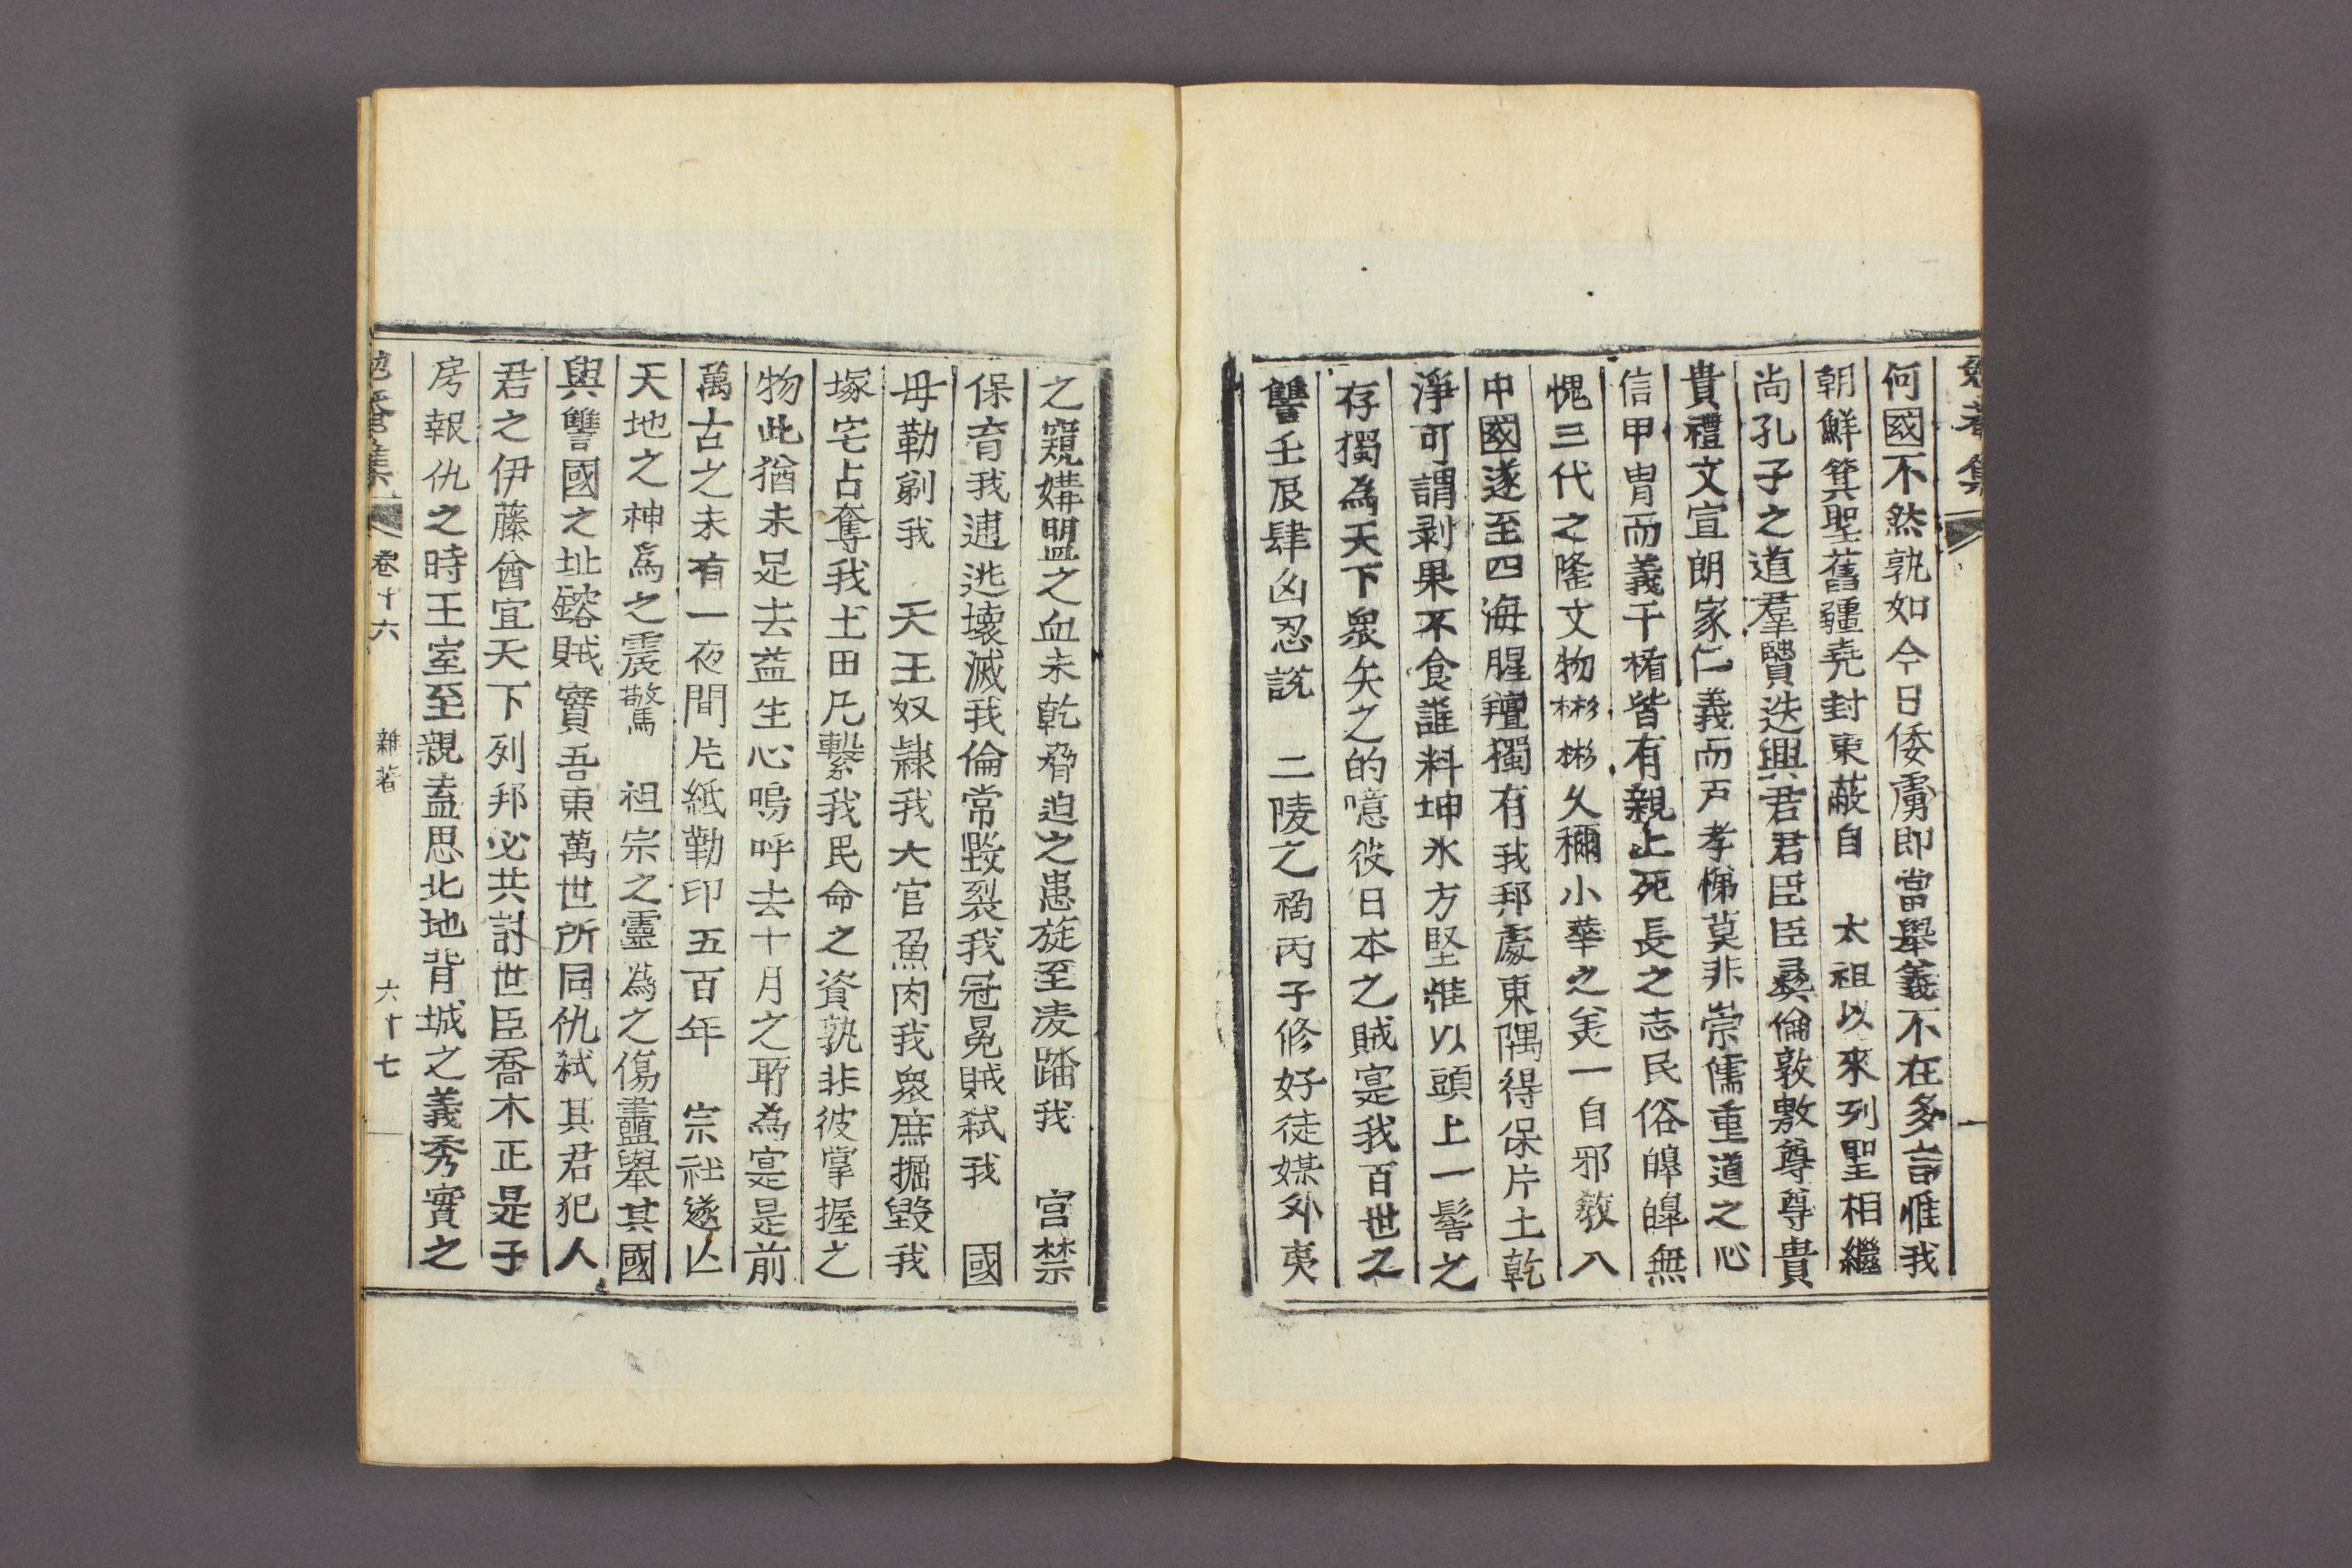 勉菴集
何國不然孰如今日倭虜即當舉義不在多言惟我
朝鮮箕聖舊疆堯封東蔽自　太祖以來列聖相繼
尚孔子之道羣賢迭興君君臣臣彛倫敦敷尊尊貴
貴禮文宣朗家仁義而戶孝悌莫非崇儒重道之心
信甲冑而義干櫓皆有親上死長之志民俗皥皥無
愧三代之隆文物彬彬久稱小華之美一自邪敎入
中國遂至四海腥羶獨有我邦處東隅得保片土乾
淨可謂剥果不食誰料坤氷方堅惟以頭上一髻之
存獨為天下衆矢之的噫彼日本之賊寔我百世之
讐壬辰肆凶忍說　二陵之禍丙子修好徒媒外夷
之窺媾盟之血未乾脅迫之患旋至凌踏我　宮禁
保育我逋逃壞滅我倫常毀裂我冠冕賊弒我　國
母勒剃我　天王奴隷我大官魚肉我衆庶掘毀我
塚宅占奪我土田凡繫我民命之資孰非彼掌握之
物此猶未足去益生心嗚呼去十月之所為寔是前
萬古之未有一夜間片紙勒印五百年　宗社遂亡
天地之神爲之震驚　祖宗之靈爲之傷盡舉其國
與讐國之址鎔賊實吾東萬世所同仇弒其君犯人
君之伊藤酋宜天下列邦必共討世臣喬木正是子
房報仇之時王室至親盍思北地背城之義秀實之
勉菴集　卷十六　雜著　六十七